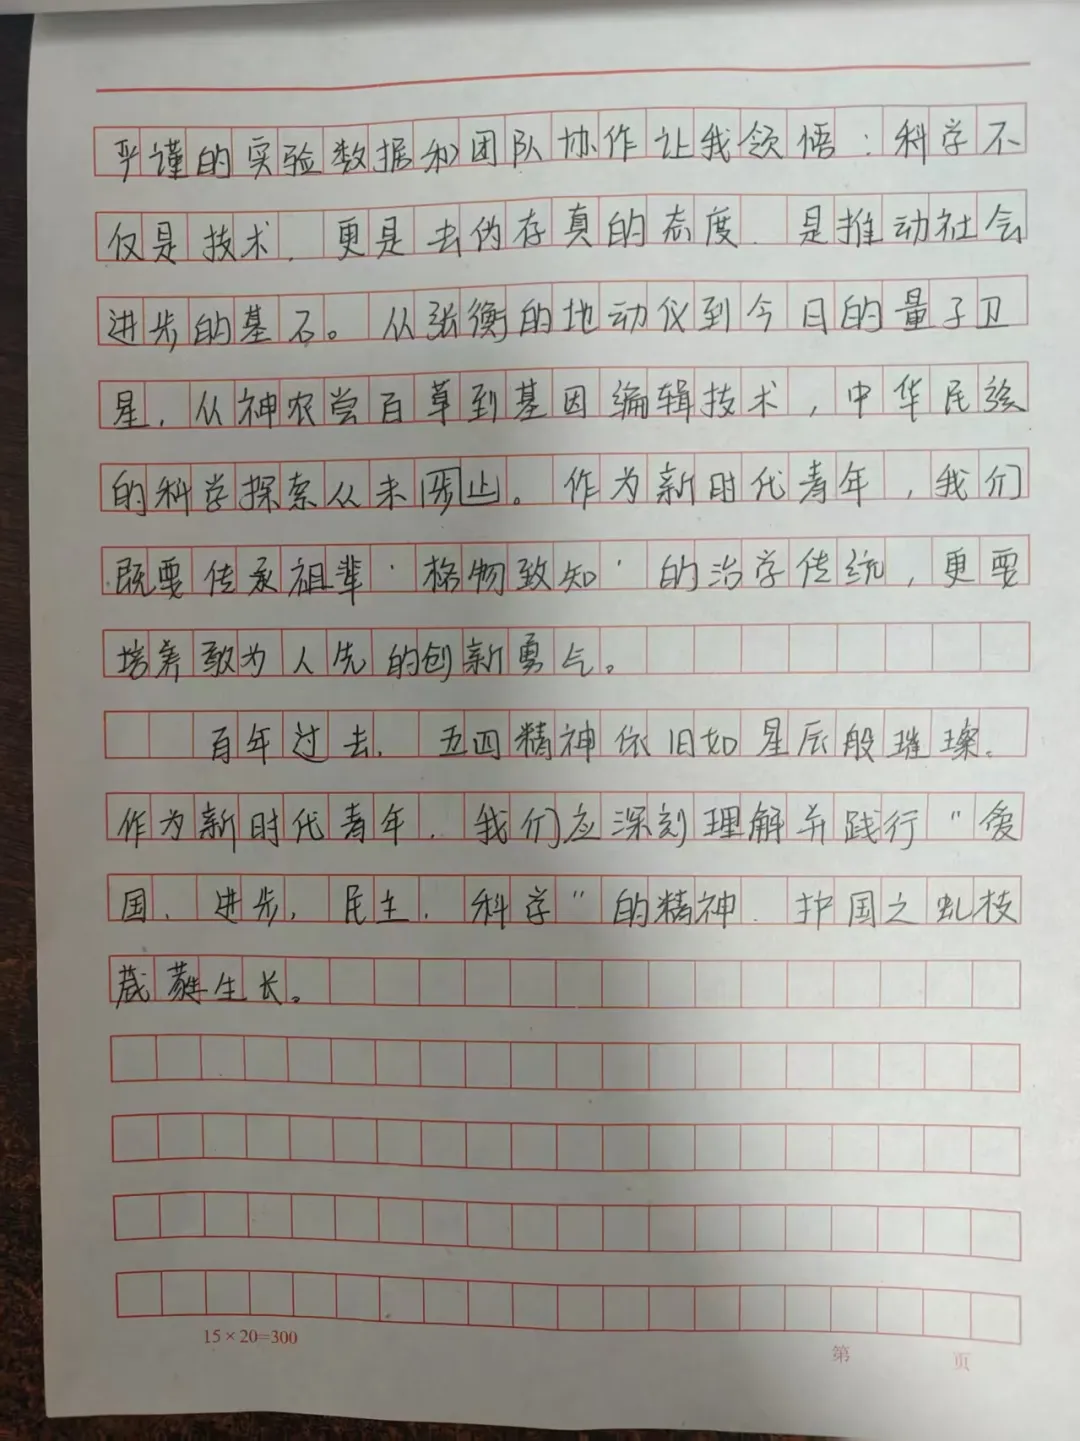 严谨的实验数据和团队协作让我领悟：科学不
仅是技术，更是去伪存真的态度，是推动社会
进步的基石。从张衡的地动仪到今日的量子卫
星，从神农尝百草到基因编辑技术，中华民族
的科学探索从未停止。作为新时代青年，我们
既要传承祖辈‘格物致知’的治学传统，更要
培养敢为人先的创新勇气。
百年过去，五四精神依旧如星辰般璀璨。
作为新时代青年，我们应深刻理解并践行“爱
国、进步、民主、科学”的精神，护国之虬枝
葳蕤生长。
15×20=300
第 页